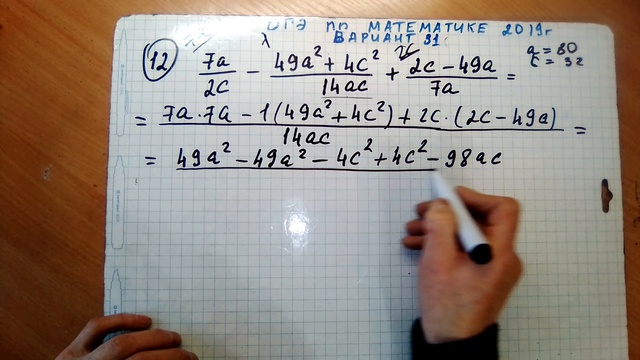 ОГЭ ПО МАТЕМАТИКЕ 2019г
ВАРИАНТ 31
a = 80
c = 32
12 7a/2c - (49a² + 4c²)/14ac + (2c - 49a)/7a =
= (7a·7a - 1(49a² + 4c²) + 2c·(2c - 49a))/14ac =
= 49a² - 49a² - 4c² + 4c² - 98ac